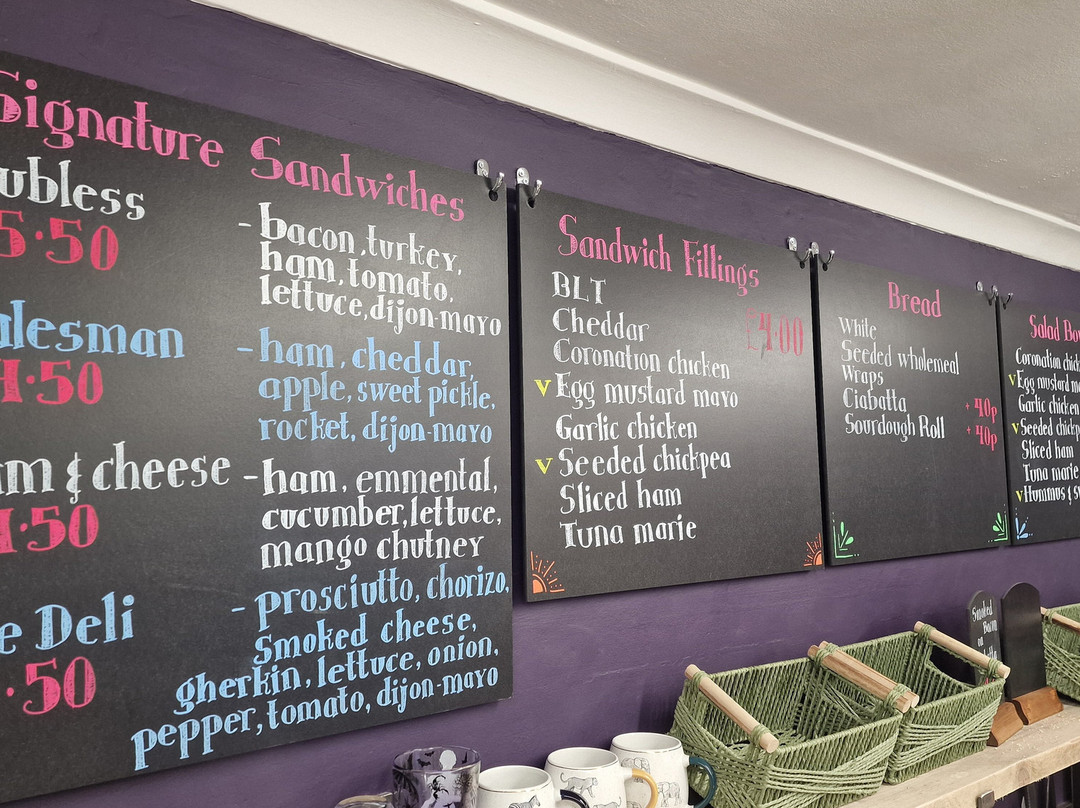 Signature Sandwiches
ubless
5.50
- bacon, turkey,
ham, tomato,
lettuce, dijon-mayo
alesman
4.50
- ham, cheddar,
apple, sweet pickle,
rocket, dijon-mayo
am & cheese
4.50
- ham, emmental,
cucumber, lettuce,
mango chutney
e Deli
.50
- prosciutto, chorizo,
smoked cheese,
gherkin, lettuce, onion,
pepper, tomato, dijon-mayo
Sandwich Fillings
£4.00
BLT
Cheddar
Coronation chicken
V Egg mustard mayo
Garlic chicken
V Seeded chickpea
Sliced ham
Tuna marie
Bread
White
Seeded wholemeal
Wraps
Ciabatta + 40p
Sourdough Roll + 40p
Salad Bo
Coronation chick
V Egg mustard ma
Garlic chicken
V Seeded chickp
Sliced ham
Tuna marie
V Hummus & s
Smoked
Bacon